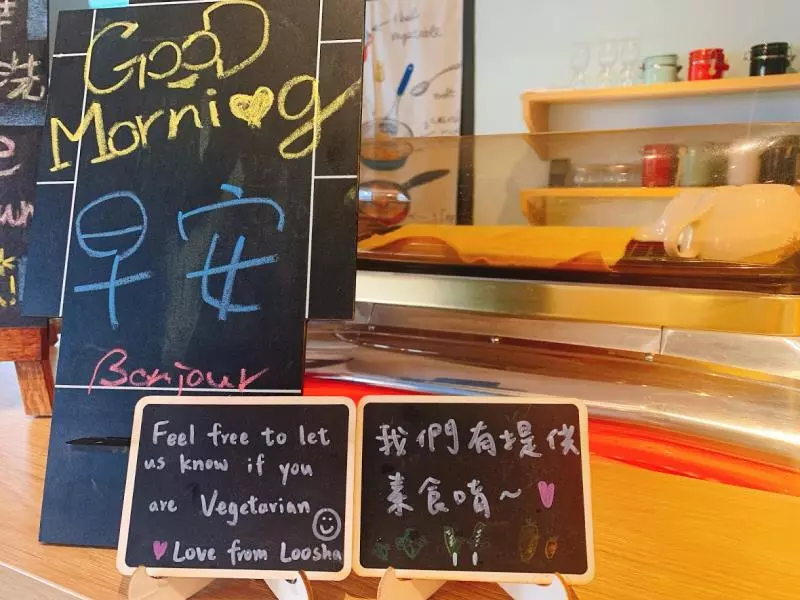 GooD
Morni♥g
早安
Bonjour
Feel free to let
us know if you
are Vegetarian
Love from Loosha
我們有提供
素食唷~
洗